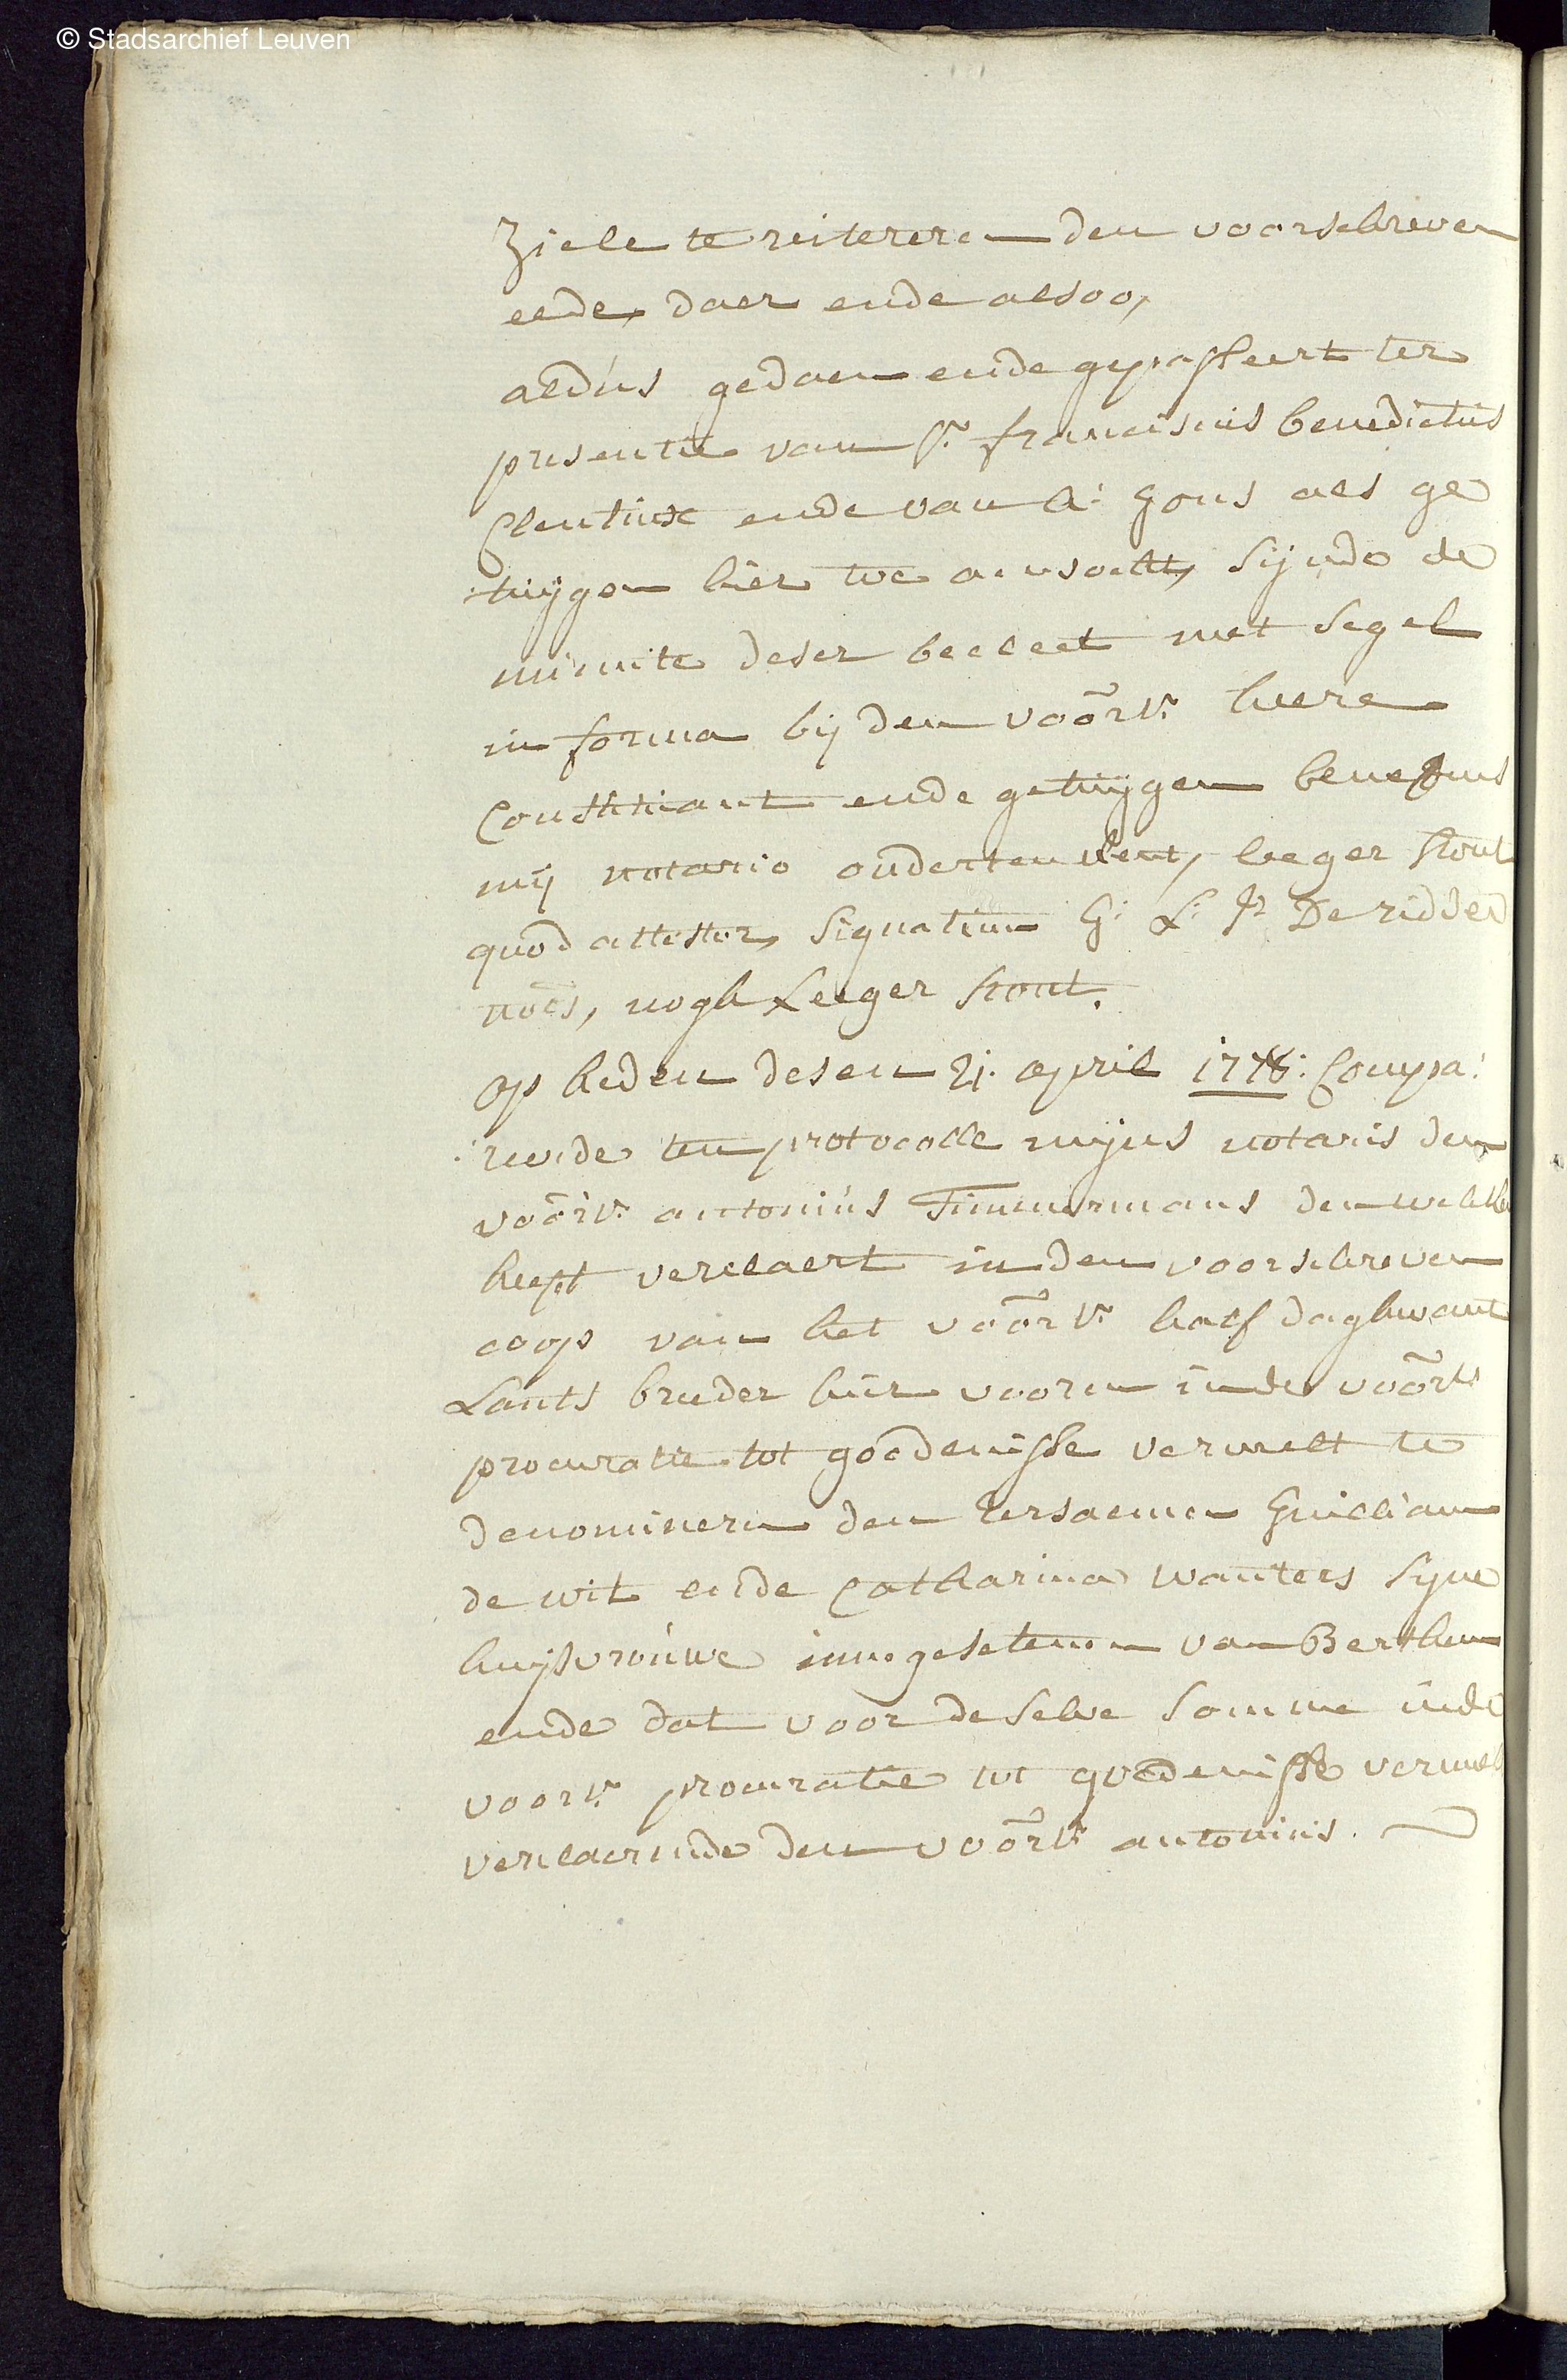 © Stadsarchief Leuven
Ziele te reitereren den voorschreven
eede, daer ende alsoo,
aldús gedaen ende gepasseert ter
presentie van sr. franciscús benedictús
Clentinx ende van A: Gons als ge
:túijgen hier toe aensocht, sijnde de
minúite deser becleet met segel
in forma bij den voõrs. heere
Constitúant ende getúijgen benefens
mij notario onderteeckent, leeger stont
qúod attestor, signatúm G: L: J: De ridder
nots, nogh Leeger stont.
op heden desen 21. april 1778: Compa:
:reerde ten protocolle mijns notaris den
voõrs. antoniús Timmermans den welken
heeft verclaert in den voorschreven
coop van het voõrs. half daghwant
Lants breeder hier vooren inde voõrs
procuratie tot goedenisse vermelt te
denomineren den Eersaemen Guilliam
de wit ende Catharina Wauters sijne
huijsvroúwe innegesetenen van Berthem
ende dat voor de selve somme inde
voors. procuratie tot goedenisse vermelt
verclaerende den voõrs. antoniús.